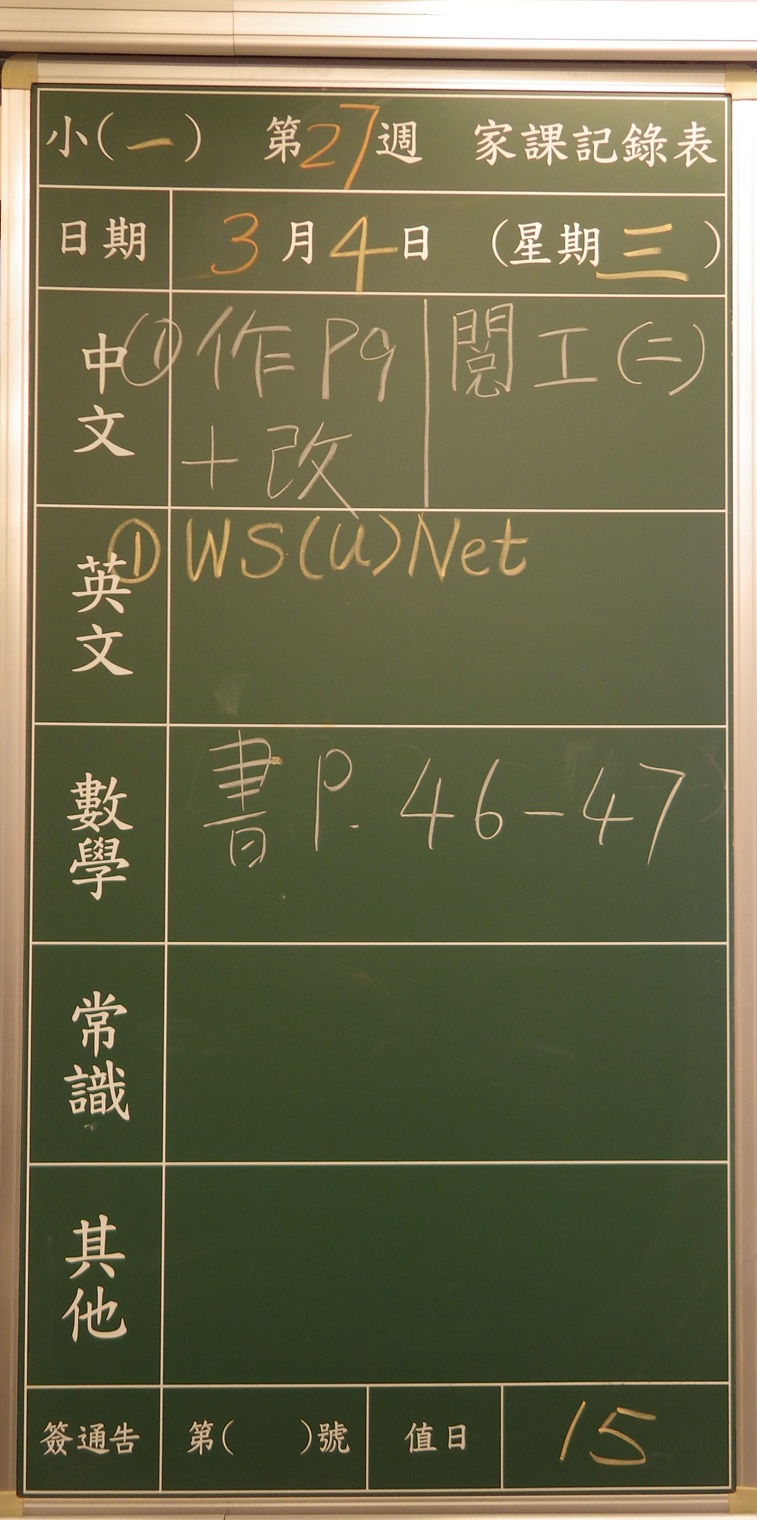 小(一) 第27週 家課記錄表
日期 3月4日 (星期三)
中文 ① 作 P9 閱工(二)
+改
英文 ① WS(U)Net
數學 書 P. 46-47
常識
其他
簽通告 第( )號 值日 15